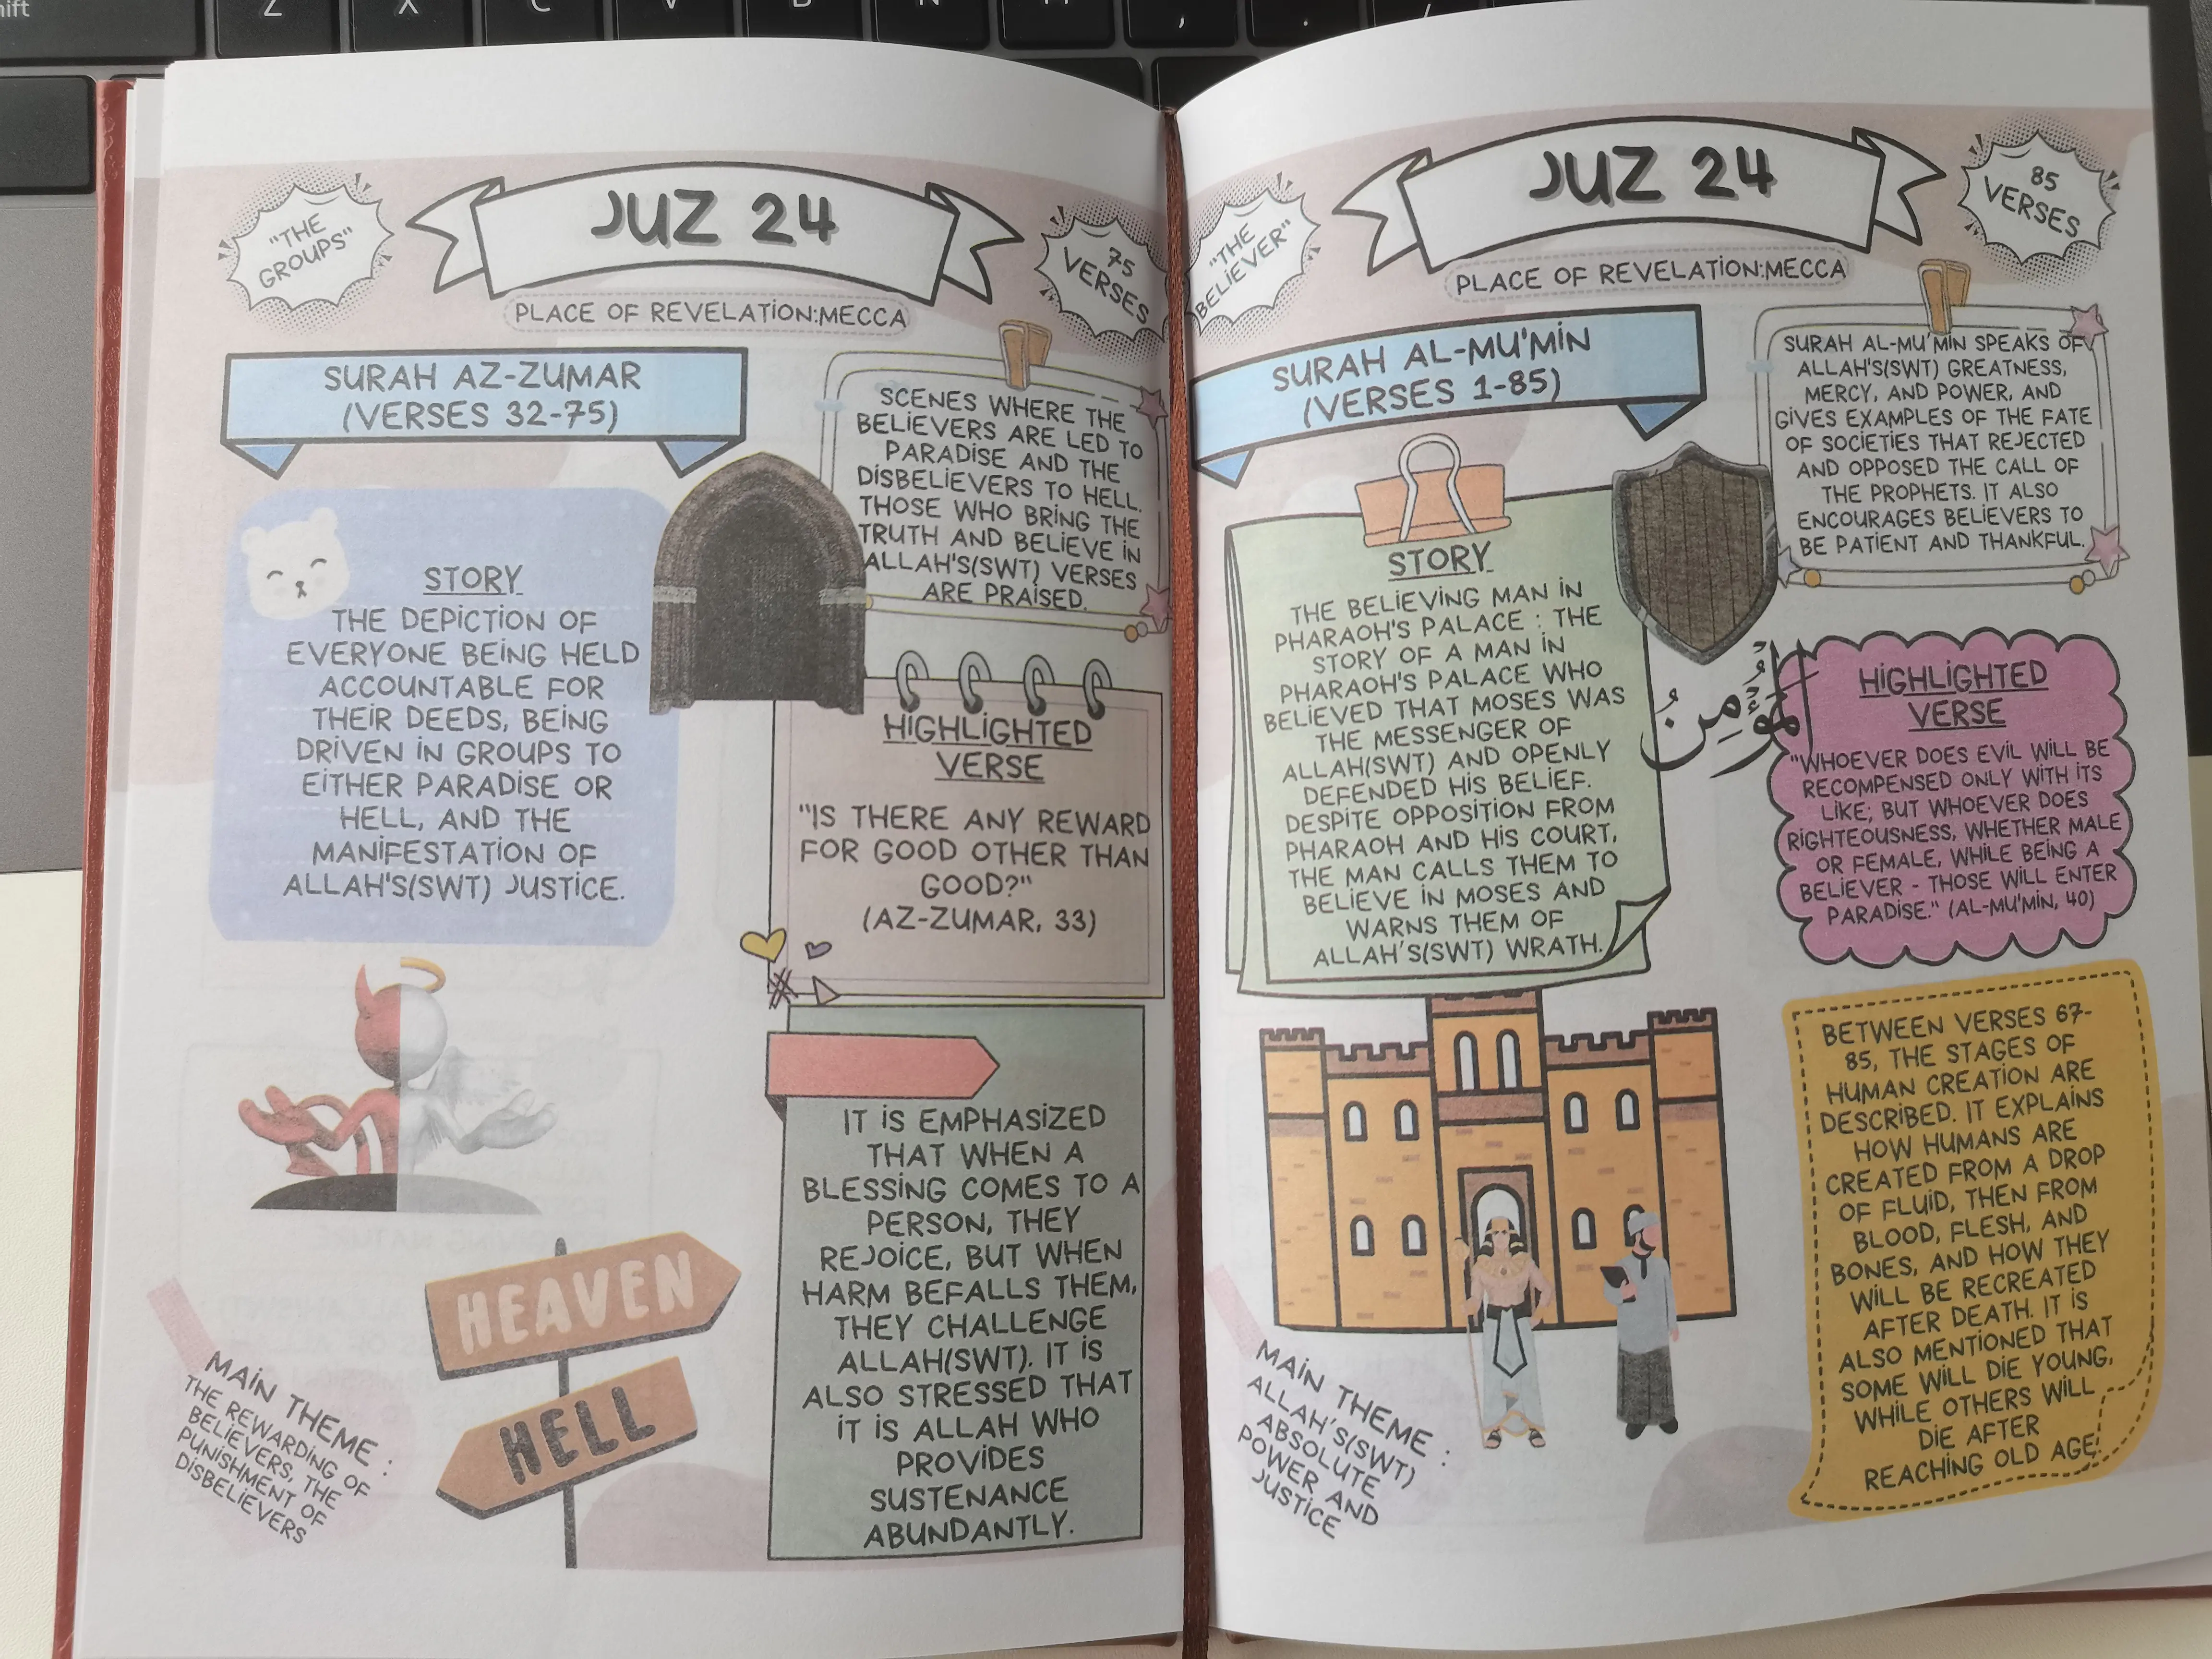 "THE
GROUPS"
JUZ 24
75
VERSES
PLACE OF REVELATION:MECCA
SURAH AZ-ZUMAR
(VERSES 32-75)
SCENES WHERE THE
BELIEVERS ARE LED TO
PARADISE AND THE
DISBELIEVERS TO HELL.
THOSE WHO BRING THE
TRUTH AND BELIEVE IN
ALLAH'S(SWT) VERSES
ARE PRAISED.
STORY
THE DEPICTION OF
EVERYONE BEING HELD
ACCOUNTABLE FOR
THEIR DEEDS, BEING
DRIVEN IN GROUPS TO
EITHER PARADISE OR
HELL, AND THE
MANIFESTATION OF
ALLAH'S(SWT) JUSTICE.
HIGHLIGHTED
VERSE
"IS THERE ANY REWARD
FOR GOOD OTHER THAN
GOOD?"
(AZ-ZUMAR, 33)
IT IS EMPHASIZED
THAT WHEN A
BLESSING COMES TO A
PERSON, THEY
REJOICE, BUT WHEN
HARM BEFALLS THEM,
THEY CHALLENGE
ALLAH(SWT). IT IS
ALSO STRESSED THAT
IT IS ALLAH WHO
PROVIDES
SUSTENANCE
ABUNDANTLY.
HEAVEN
HELL
MAIN THEME :
THE REWARDING OF
BELIEVERS, THE
PUNISHMENT OF
DISBELIEVERS
"THE
BELIEVER"
JUZ 24
85
VERSES
PLACE OF REVELATION:MECCA
SURAH AL-MU'MIN
(VERSES 1-85)
SURAH AL-MU'MIN SPEAKS OF
ALLAH'S(SWT) GREATNESS,
MERCY, AND POWER, AND
GIVES EXAMPLES OF THE FATE
OF SOCIETIES THAT REJECTED
AND OPPOSED THE CALL OF
THE PROPHETS. IT ALSO
ENCOURAGES BELIEVERS TO
BE PATIENT AND THANKFUL.
STORY
THE BELIEVING MAN IN
PHARAOH'S PALACE : THE
STORY OF A MAN IN
PHARAOH'S PALACE WHO
BELIEVED THAT MOSES WAS
THE MESSENGER OF
ALLAH(SWT) AND OPENLY
DEFENDED HIS BELIEF.
DESPITE OPPOSITION FROM
PHARAOH AND HIS COURT,
THE MAN CALLS THEM TO
BELIEVE IN MOSES AND
WARNS THEM OF
ALLAH'S(SWT) WRATH.
المُؤْمِنُ
HIGHLIGHTED
VERSE
"WHOEVER DOES EVIL WILL BE
RECOMPENSED ONLY WITH ITS
LIKE; BUT WHOEVER DOES
RIGHTEOUSNESS, WHETHER MALE
OR FEMALE, WHILE BEING A
BELIEVER - THOSE WILL ENTER
PARADISE." (AL-MU'MIN, 40)
BETWEEN VERSES 67-
85, THE STAGES OF
HUMAN CREATION ARE
DESCRIBED. IT EXPLAINS
HOW HUMANS ARE
CREATED FROM A DROP
OF FLUID, THEN FROM
BLOOD, FLESH, AND
BONES, AND HOW THEY
WILL BE RECREATED
AFTER DEATH. IT IS
ALSO MENTIONED THAT
SOME WILL DIE YOUNG,
WHILE OTHERS WILL
DIE AFTER
REACHING OLD AGE.
MAIN THEME :
ALLAH'S(SWT)
ABSOLUTE
POWER AND
JUSTICE